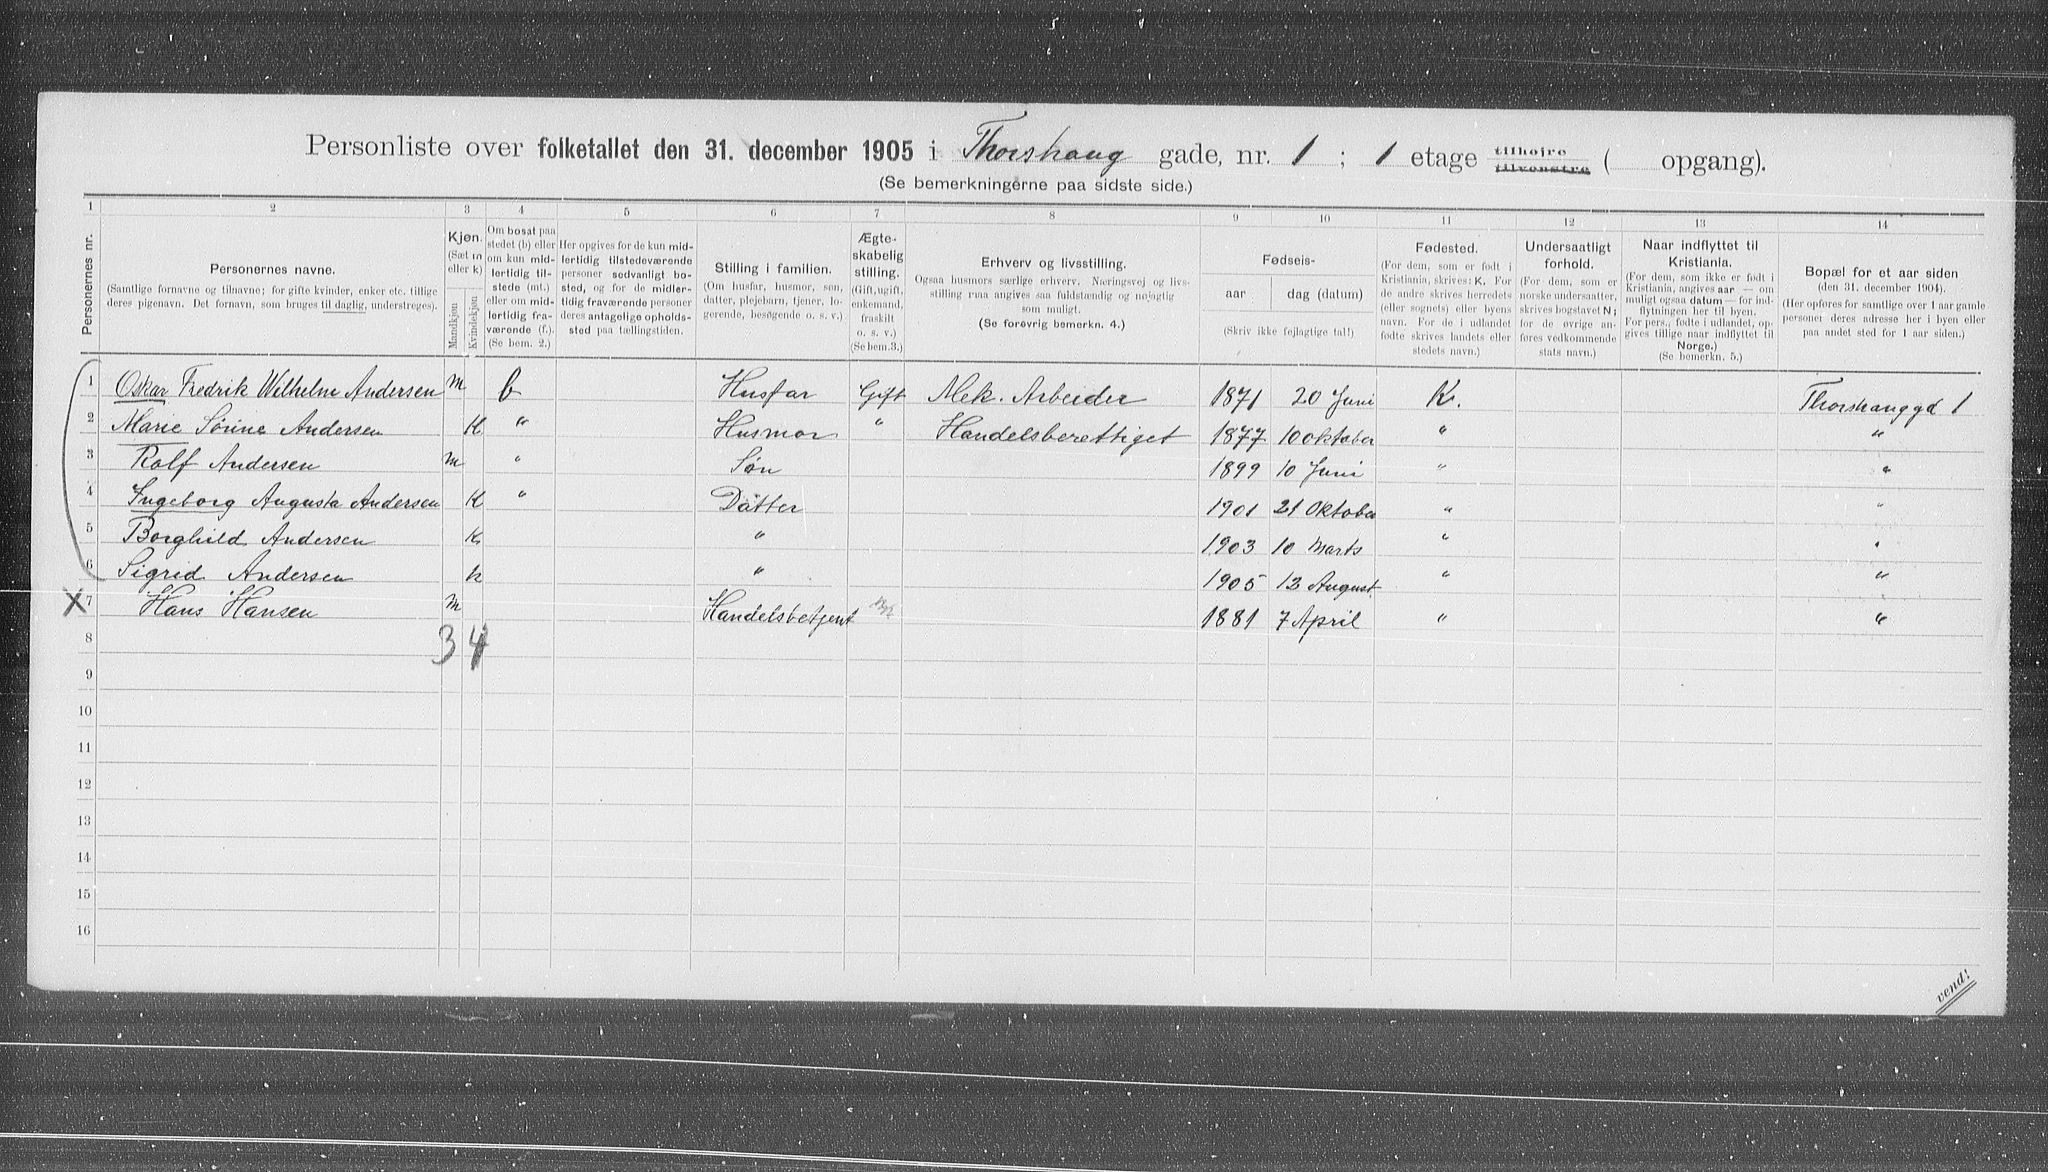 Personliste over folketallet den 31. december 1905 i Thorshaug gade, nr. 1 ; 1 etage tilhøjre tilvenstre ( opgang).
(Se bemerkningerne paa sidste side.)
1 2 3 4 5 6 7 8 9 10 11 12 13 14
Personernes nr.
Personernes navne.
(Samtlige fornavne og tilnavne; for gifte kvinder, enker etc. tillige
deres pigenavn. Det fornavn, som bruges til daglig, understreges).
Kjøn.
(Sæt m
eller k)
Mandkjøn
Kvindekjøn
Om bosat paa
stedet (b) eller
om kun mid-
lertidig til-
stede (mt.)
eller om mid-
lertidig fra-
værende (f.).
(Se bem. 2.)
Her opgives for de kun mid-
lertidig tilstedeværende
personer sedvanligt bo-
sted, og for de midler-
tidig fraværende personer
deres antagelige opholds-
sted paa tællingstiden.
Stilling i familien.
(Om husfar, husmor, søn,
datter, plejebarn, tjener, lo-
gerende, besøgende o. s. v.)
Ægte-
skabelig
stilling.
(Gift, ugift,
enkemand,
fraskilt
o. s. v.)
(Se bem. 3.)
Erhverv og livsstilling.
Ogsaa husmors særlige erhverv. Næringsvej og livs-
stilling maa angives saa fuldstændig og nøjagtig
som muligt.
(Se forøvrig bemerkn. 4.)
Fødseis-
aar dag (datum)
(Skriv ikke fejlagtige tal!)
Fødested.
(For dem, som er født i
Kristiania, skrives: K. For
de andre skrives herredets
(eller sognets) eller byens
navn. For de i udlandet
fødte skrives landets eller
stedets navn.)
Undersaatligt
forhold.
(For dem, som er
norske undersaatter,
skrives bogstavet N;
for de øvrige an-
føres vedkommende
stats navn.)
Naar indflyttet til
Kristiania.
(For dem, som ikke er født i
Kristiania, angives aar — om
muligt ogsaa datum — for ind-
flytningen her til byen.
For pers., fødte i udlandet, op-
gives tillige naar indflyttet til
Norge.)
(Se bemerkn. 5.)
Bopæl for et aar siden
(den 31. december 1904).
(Her opføres for samtlige over 1 aar gamle
personer deres adresse her i byen eller
paa andet sted for 1 aar siden.)
1 Oskar Fredrik Wilhelm Andersen m b Husfar Gift Mek. Arbeider 1871 20 Juni K. Thorshauggd 1
2 Marie Sørine Andersen K " Husmor " Handelsberettiget 1877 10 Oktober " "
3 Rolf Andersen m " Søn 1899 10 Juni " "
4 Ingeborg Augusta Andersen K " Datter 1901 21 Oktober " "
5 Borghild Andersen K " 1903 10 Marts " "
6 Sigrid Andersen k " 1905 13 August " "
X 7 Hans Hansen m Handelsbetjent 1881 7 April " "
8 3 4
9
10
11
12
13
14
15
16
vend!